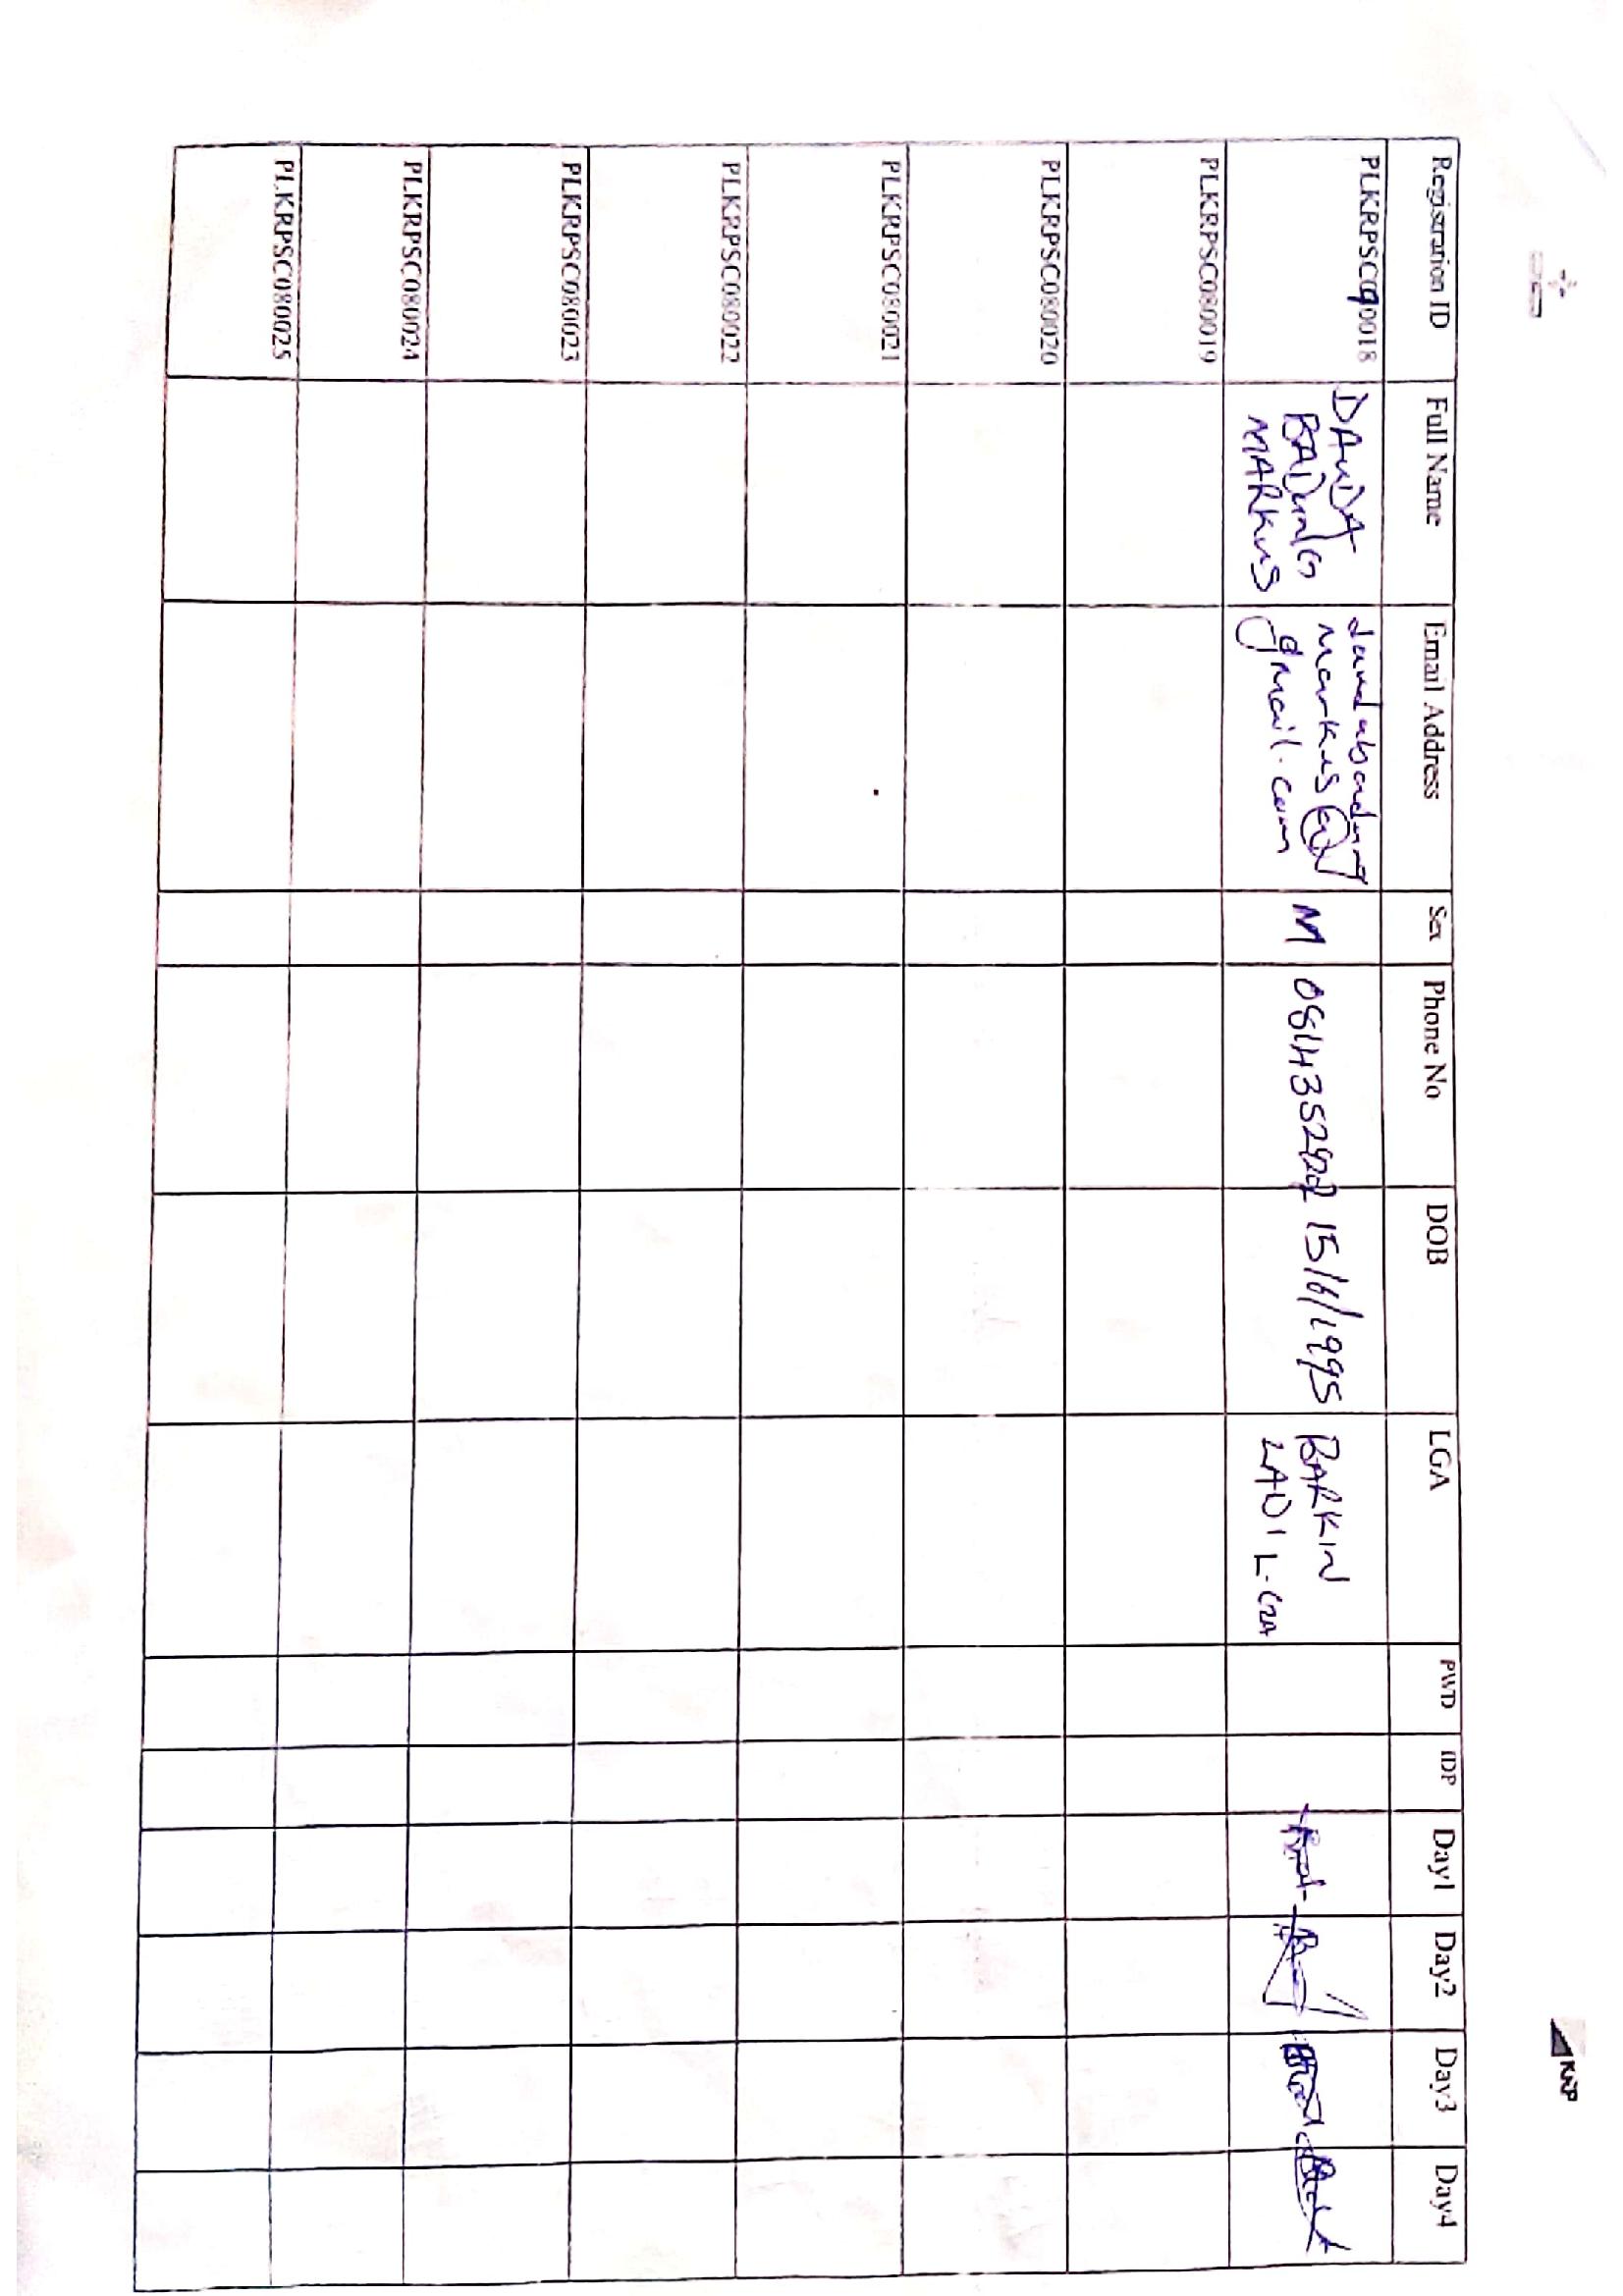 KRP
Registration ID Full Name Email Address Sex Phone No DOB LGA PWD IDP Day1 Day2 Day3 Day4
PLKRPSC090018
DAUDA
BADUNG
MARKUS
daudabadung
markus@
gmail.com
M
15/6/1995
BARKIN
LADI L-GA
PLKRPSC080019
PLKRPSC080020
PLKRPSC080021
PLKRPSC080022
PLKRPSC080023
PLKRPSC080024
PLKRPSC080025